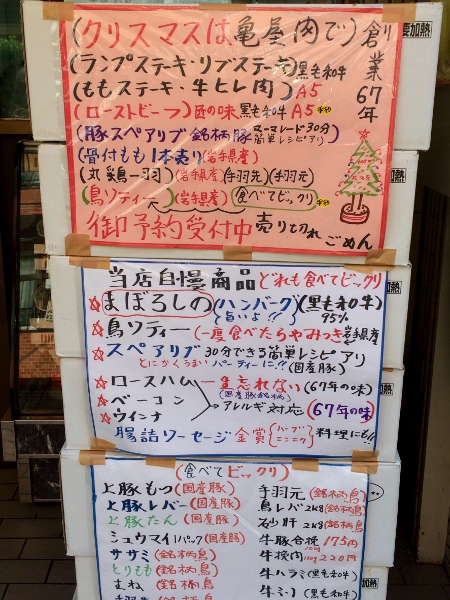 (クリスマスは亀屋肉で)
創業67年
(ランプステーキ・リブステーキ)黒毛和牛
(ももステーキ・牛ヒレ肉)A5
(ローストビーフ)匠の味 黒毛和牛 A5
(豚スペアリブ 銘柄豚 マーマレード30分 簡単レシピアリ)
(骨付もも1本売り(岩手県産)
(丸鶏一羽)(岩手県産)(手羽先)(手羽元)
(鳥ソティー大)(岩手県産)(食べてビックリ)
御予約受付中 売り切れごめん
当店自慢商品 どれも食べてビックリ
☆まぼろしの(ハンバーグ)(黒毛和牛)
旨いよ!! 95%
☆鳥ソティー(一度食べたらやみつき 岩手県産)
☆スペアリブ 30分できる簡単レシピアリ
とにかくうまい パーティーに!! (国産豚)
☆ロースハム 一生忘れない (67年の味)
☆ベーコン (国産豚 銘柄)
☆ウインナー アレルギー対応 (67年の味)
腸詰ソーセージ 金賞(ハーブ ニンニク) 料理にも!!
(食べてビックリ)
上豚もつ(国産豚)
上豚レバー(国産豚)
上豚たん(国産豚)
シュウマイ1パック(国産豚)
ササミ(銘柄鳥)
とりもも(銘柄鳥)
むね(銘柄鳥
手羽元(銘柄鳥)
鳥レバ2kg(銘柄鳥)
砂肝 2kg(銘柄鳥)
牛豚合挽 100g 175円
牛挽肉 100g 220円
牛ハラミ(黒毛和牛)
牛ミノ(黒毛和牛)
要加熱
加熱
加熱
加熱